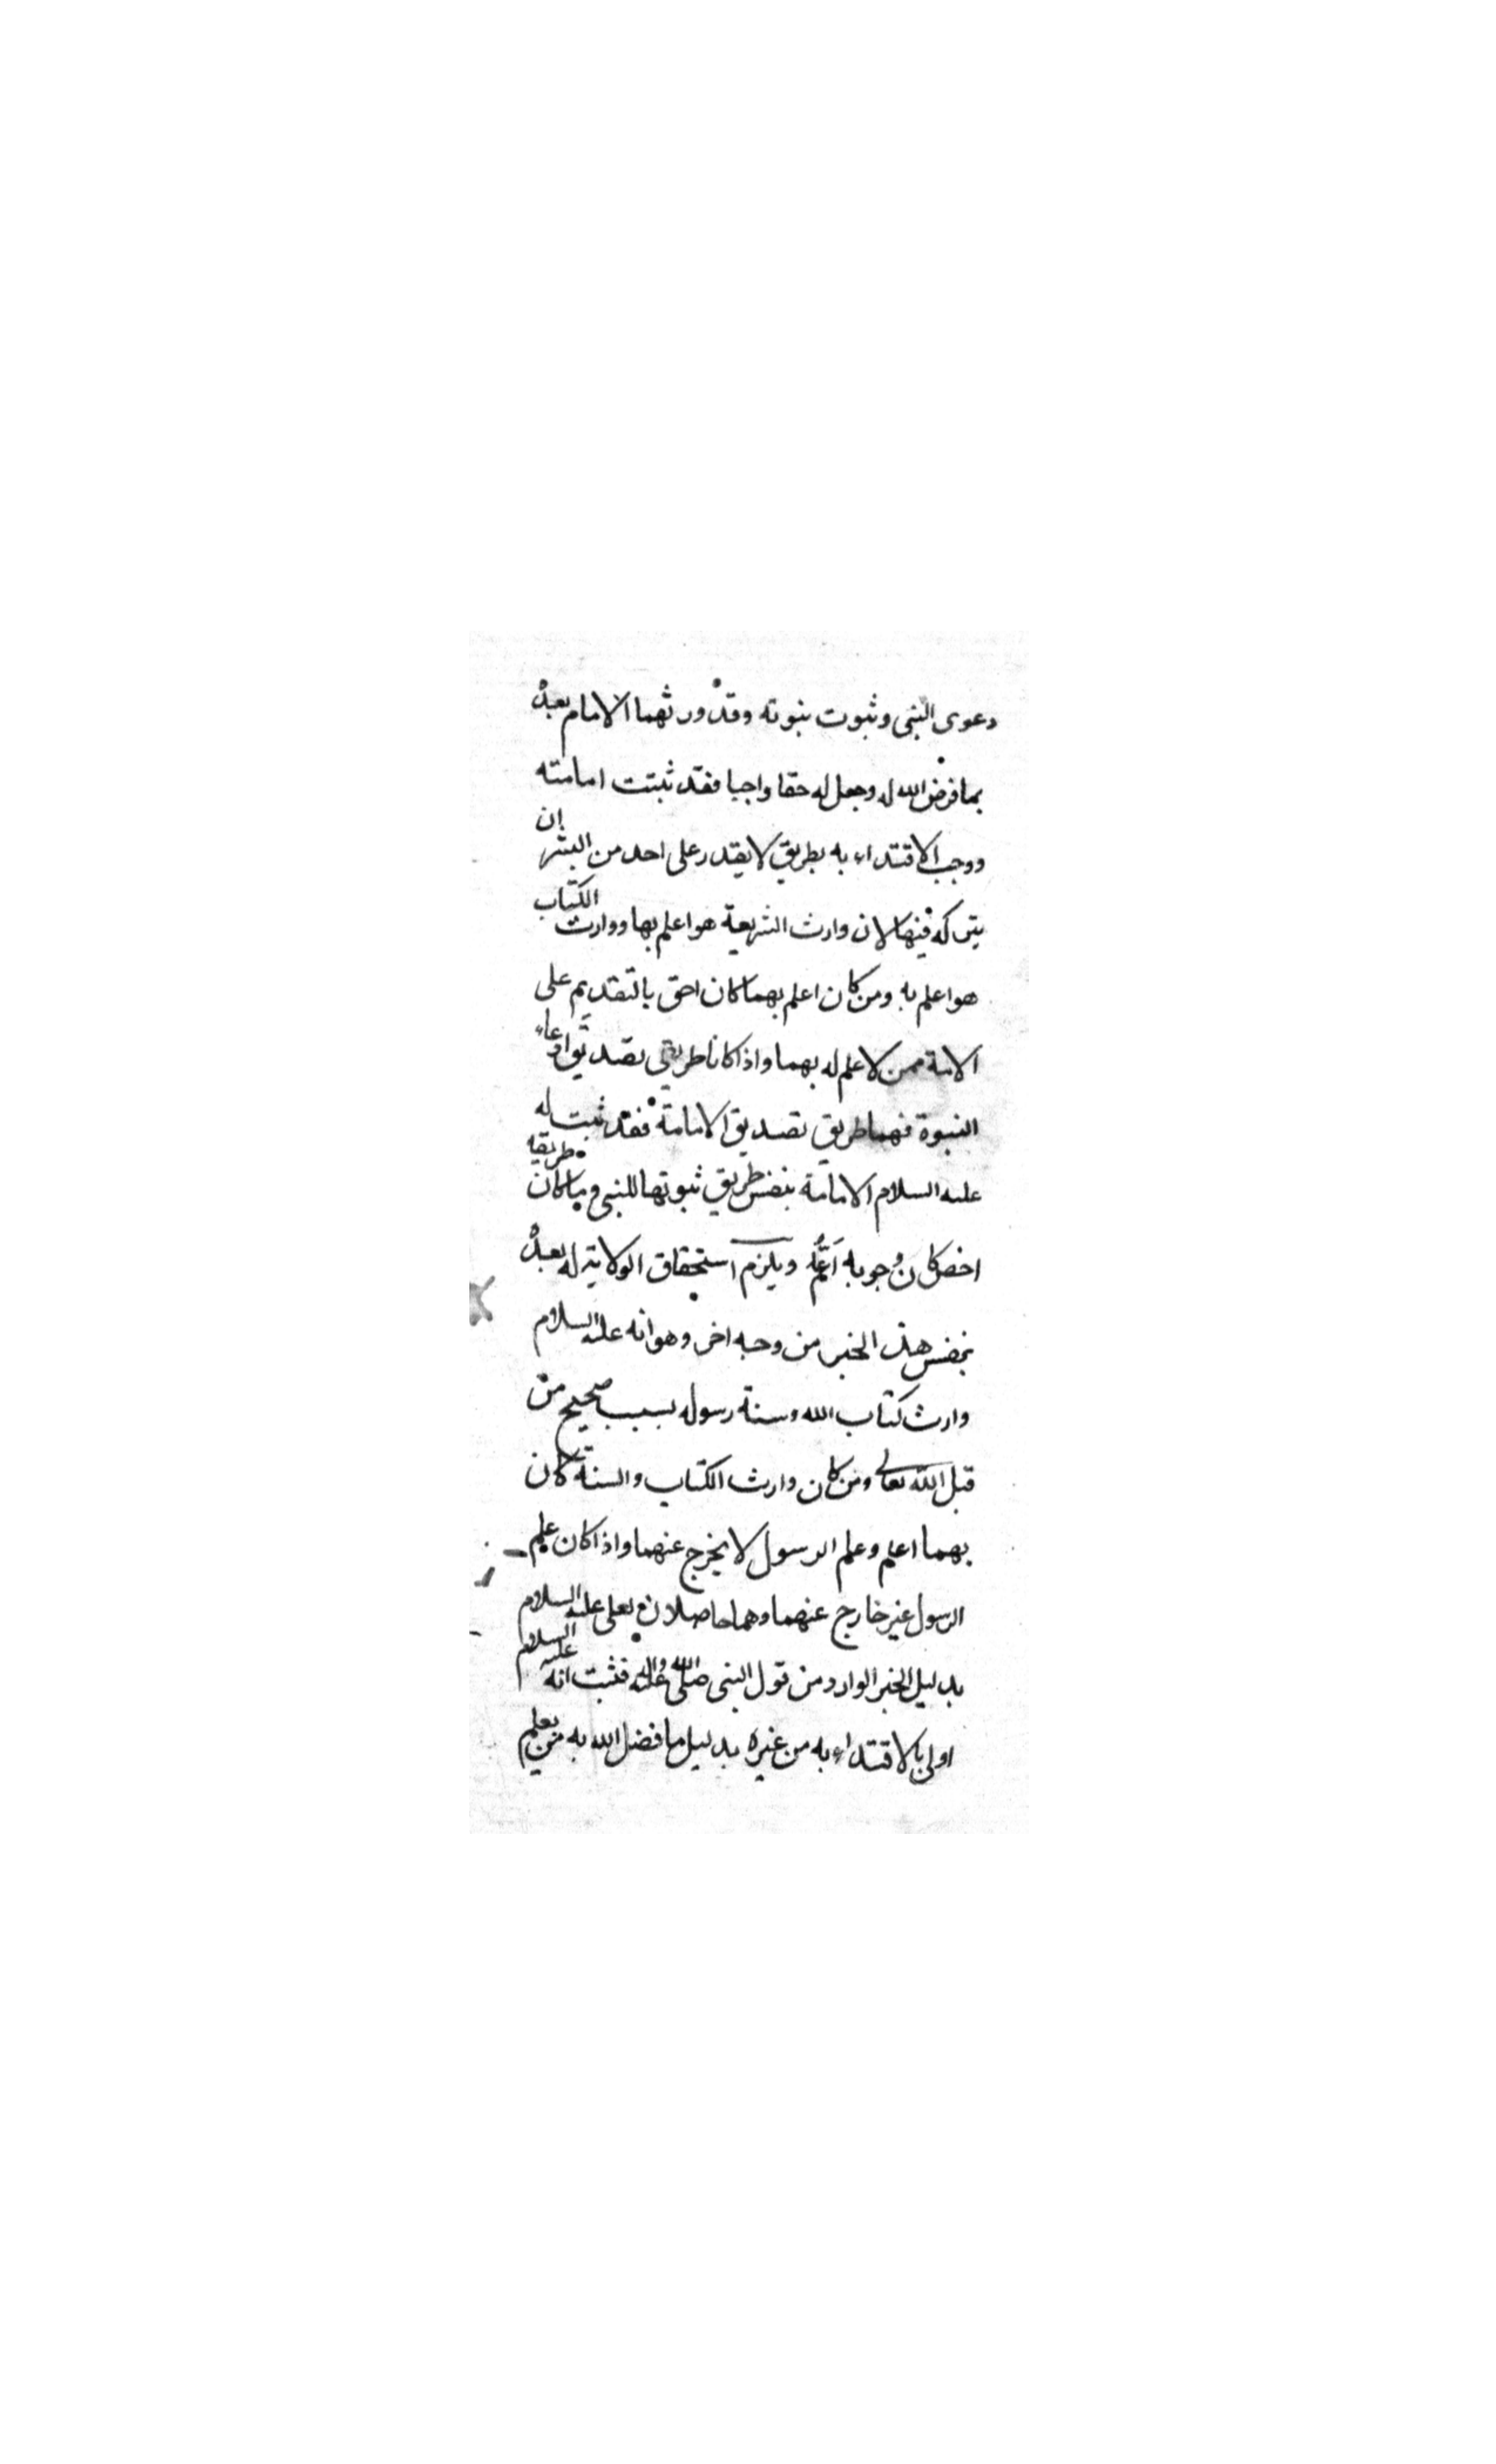 دعوى النبى وثبوت نبوته وقد ورثهما الامام بعده
بما فرض الله له وجعل له حقا واجبا فقد ثبتت امامته
ووجب الاقتداء به بطريق لا يقدر على احد من البشر ان
يتركه فيها لان وارث الشريعة هو اعلم بها ووارث الكتاب
هو اعلم به ومن كان اعلم بهما كان احق بالتقديم على
الامة ممن لا علم له بهما واذا كانا طريقى تصديق ادعاء
النبوة فهما طريق تصديق الامامة فقد ثبت له
عليه السلام الامامة بنفس طريق ثبوتها للنبى وما كان طريقه
اخص كان وجوبه اعم ويلزم استحقاق الولاية له بعده
بنفس هذا الخبر من وجه اخر وهو انه عليه السلام
وارث كتاب الله وسنة رسوله بسبب صحيح من
قبل الله تعالى ومن كان وارث الكتاب والسنة كان
بهما اعلم وعلم الرسول لا يخرج عنهما واذا كان علم
الرسول غير خارج عنهما وهما حاصلان لعلى عليه السلام
بدليل الخبر الوارد من قول النبى صلى الله عليه واله فثبت انه عليه السلام
اولى بالاقتداء به من غيره بدليل ما فضل الله به من يعلم